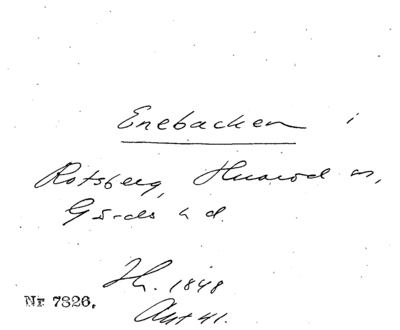 Enebacken i
Rotsberg, Huaröd sn,
Gärds hd.
Th. 1848
Akt 41.
Nr 7826.